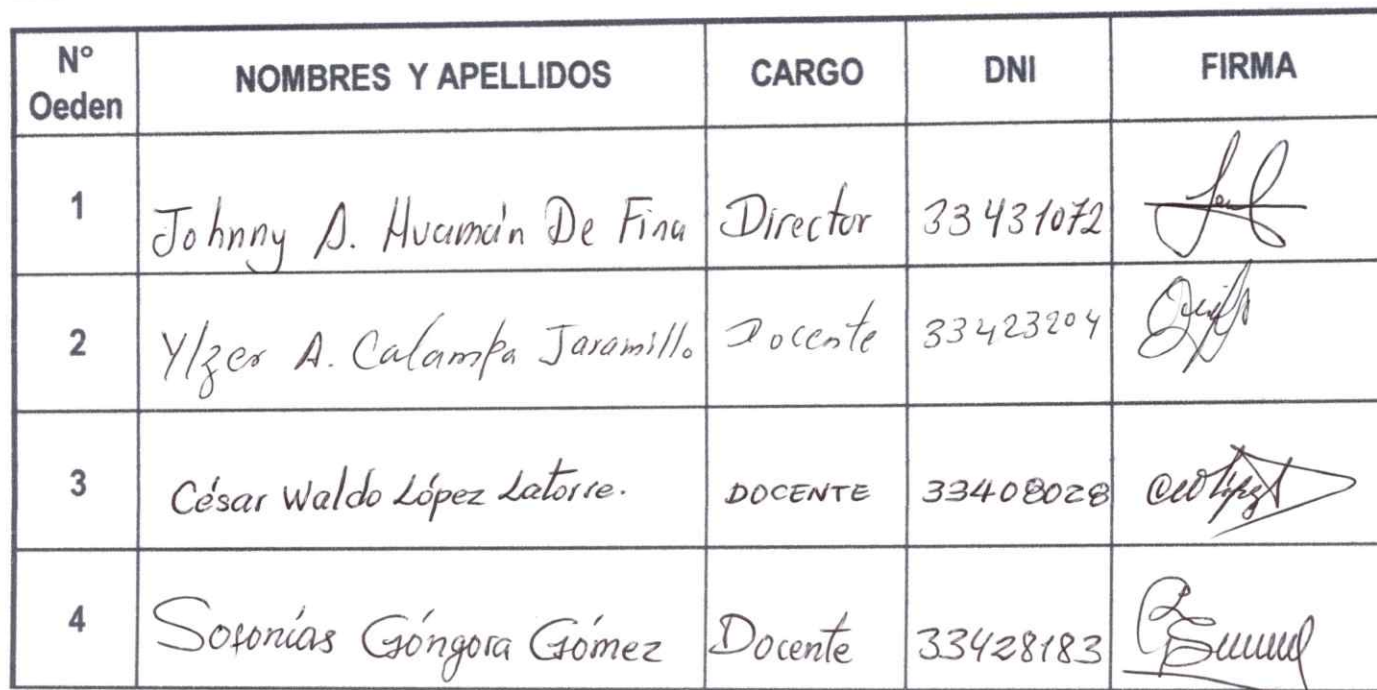 N° Oeden NOMBRES Y APELLIDOS CARGO DNI FIRMA
1 Johnny A. Huamán De Fina Director 33431072
2 Ylzer A. Calampa Jaramillo Docente 33423204
3 César Waldo López Latorre. DOCENTE 33408028
4 Sofonías Góngora Gómez Docente 33428183